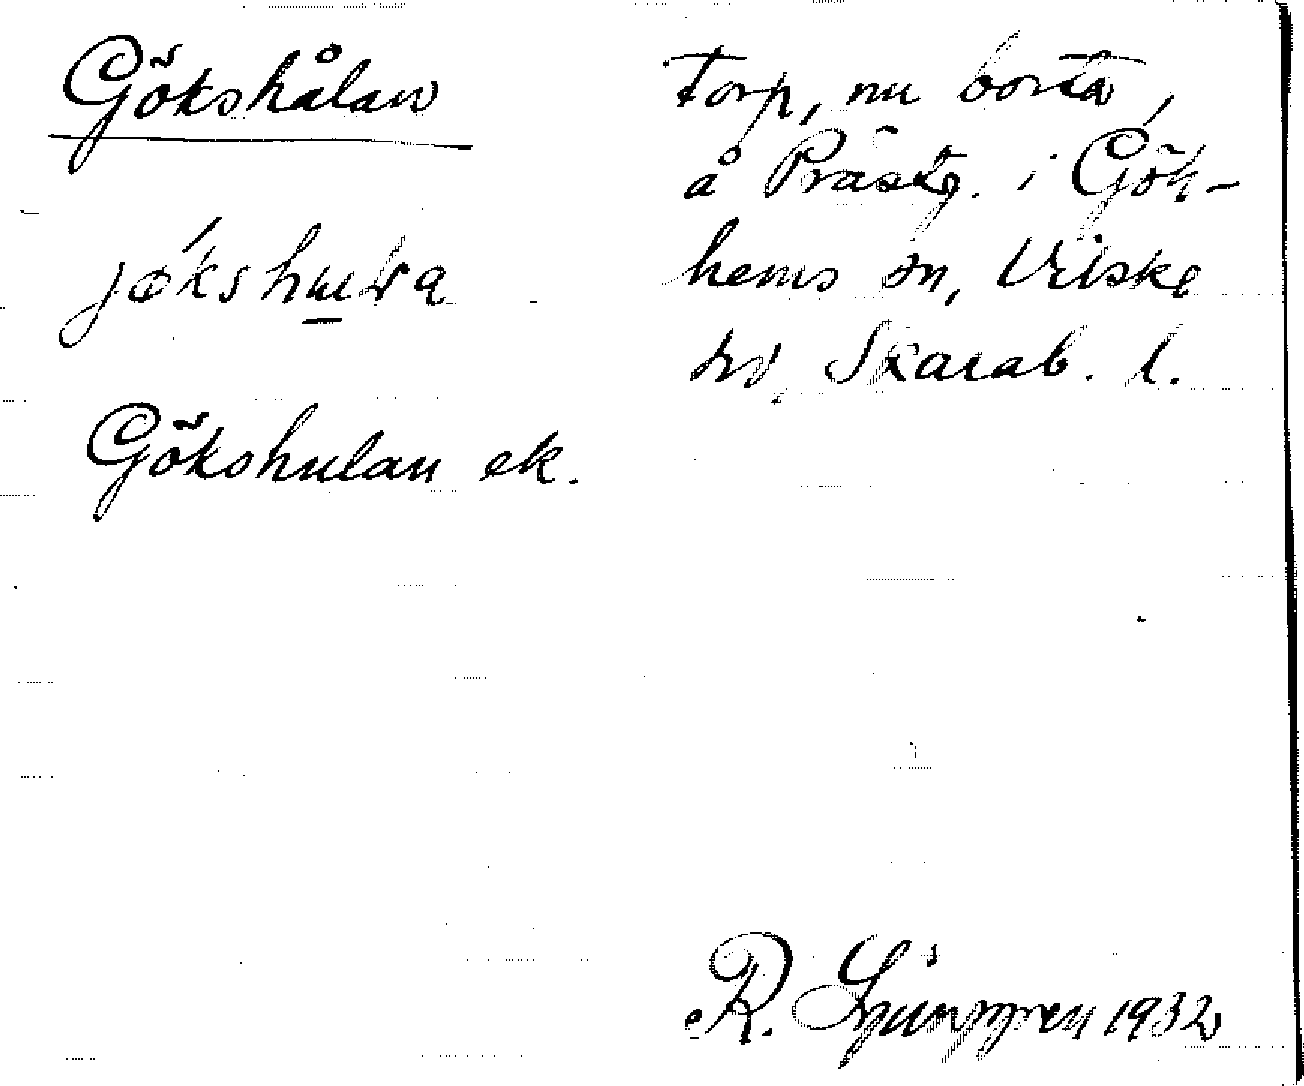 Gökshålan
jökshulva
Gökshulan ek.
torp, nu borta,
å Prästg. i Gök-
hems sn, Vilske
hd, Skarab. l.
R. Ljunggren 1932